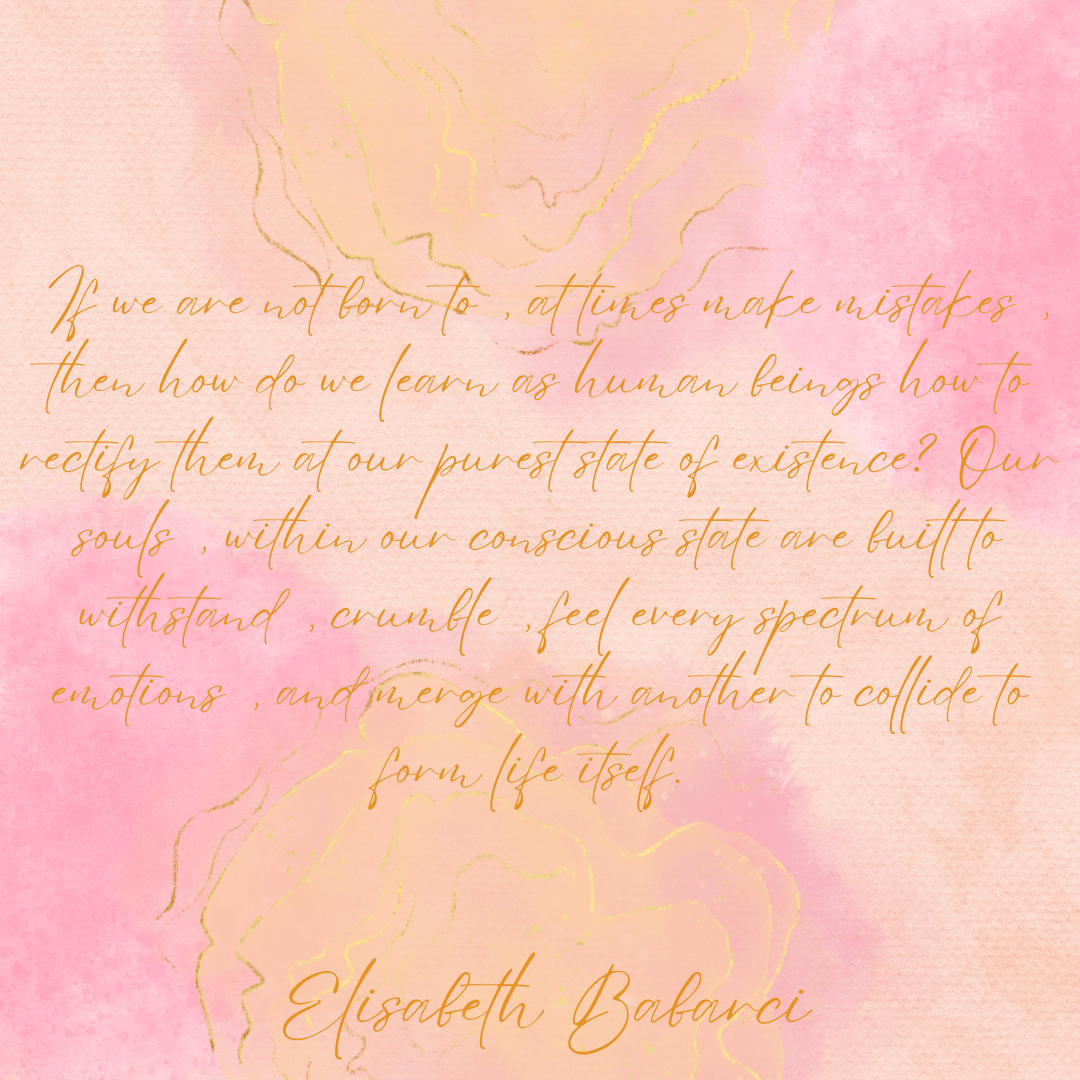 If we are not born to , at times make mistakes ,
then how do we learn as human beings how to
rectify them at our purest state of existence? Our
souls , within our conscious state are built to
withstand , crumble , feel every spectrum of
emotions , and merge with another to collide to
form life itself.
Elisabeth Babarci